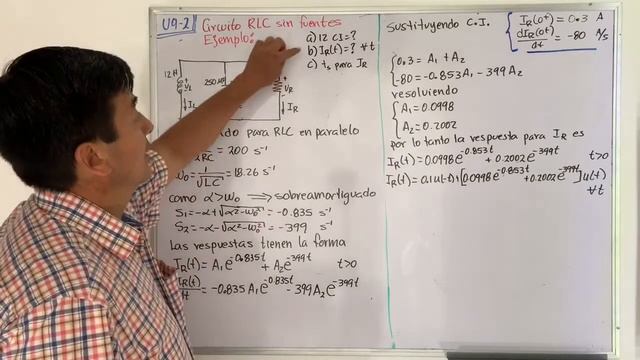 U9-2 Circuito RLC sin fuentes
Ejemplo:
a) 12 CI=?
b) IR(t)=? ∀t
c) ts para IR
12H
VL
IL
250
VR
IR
para RLC en paralelo
= 200 s⁻¹
ω₀ = 1/√LC = 18.26 s⁻¹
como α>ω₀ ⟹ sobreamortiguado
S₁ = -α+√α²-ω₀² = -0.835 s⁻¹
S₂ = -α-√α²-ω₀² = -399 s⁻¹
Las respuestas tienen la forma
IR(t) = A₁e^-0.835t + A₂e^-399t t>0
IR(t)/dt = -0.835A₁e^-0.835t - 399A₂e^-399t
Sustituyendo C.I.
IR(0⁺) = 0.3 A
dIR(0⁺)/dt = -80 A/s
0.3 = A₁ + A₂
-80 = -0.853A₁ - 399A₂
resolviendo
A₁ = 0.0998
A₂ = 0.2002
por lo tanto la respuesta para IR es
IR(t) = 0.0998e^-0.853t + 0.2002e^-399t t>0
IR(t) = 0.1u(-t)+[0.0998e^-0.853t + 0.2002e^-399t]u(t)
∀t